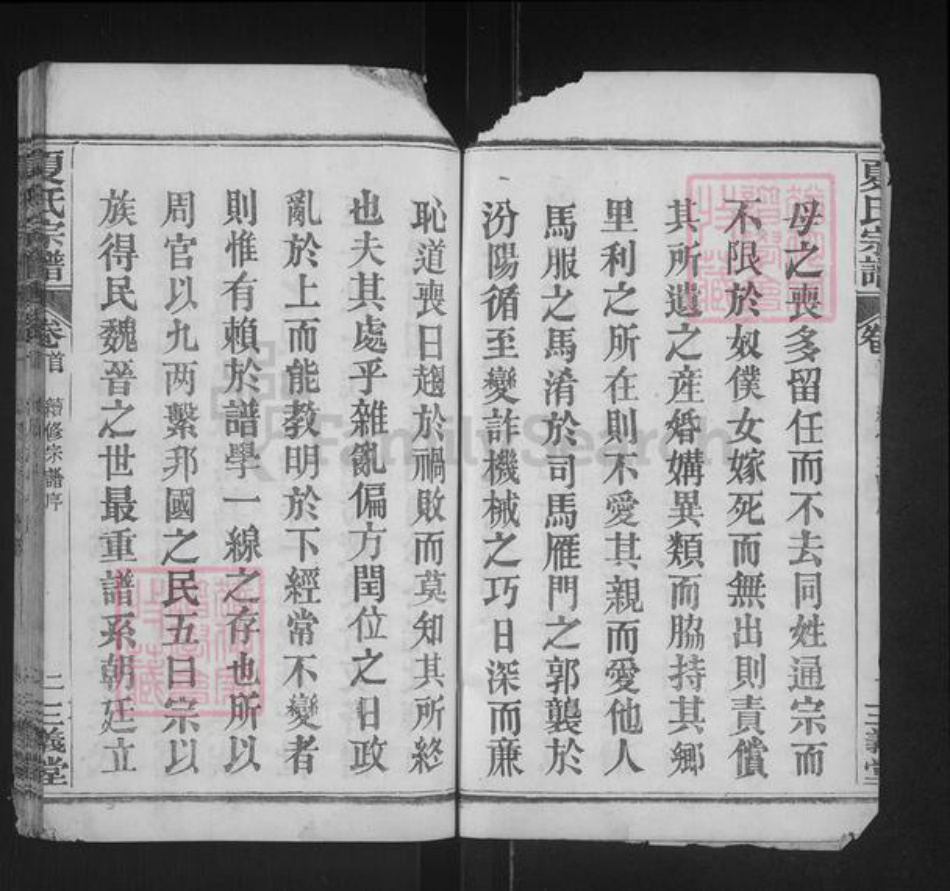 母之喪多留任而不去同姓通宗而
不限於奴僕女嫁死而無出則責償
其所遺之産婚媾異類而脇持其郷
里利之所在則不愛其親而愛他人
馬服之馬淆於司馬雁門之郭襲於
汾陽循至變詐機械之巧日深而亷
恥道喪日趨於禍敗而莫知其所終
也夫其處乎雜亂偏方閏位之日政
亂於上而能教明於下經常不變者
則惟有賴於譜學一線之存也所以
周官以九两繫邦國之民五曰宗以
族得民魏晉之世最重譜系朝廷立
夏氏宗譜
卷首
續修宗譜序
二
三義堂
夏氏宗譜
卷
FamilySearch